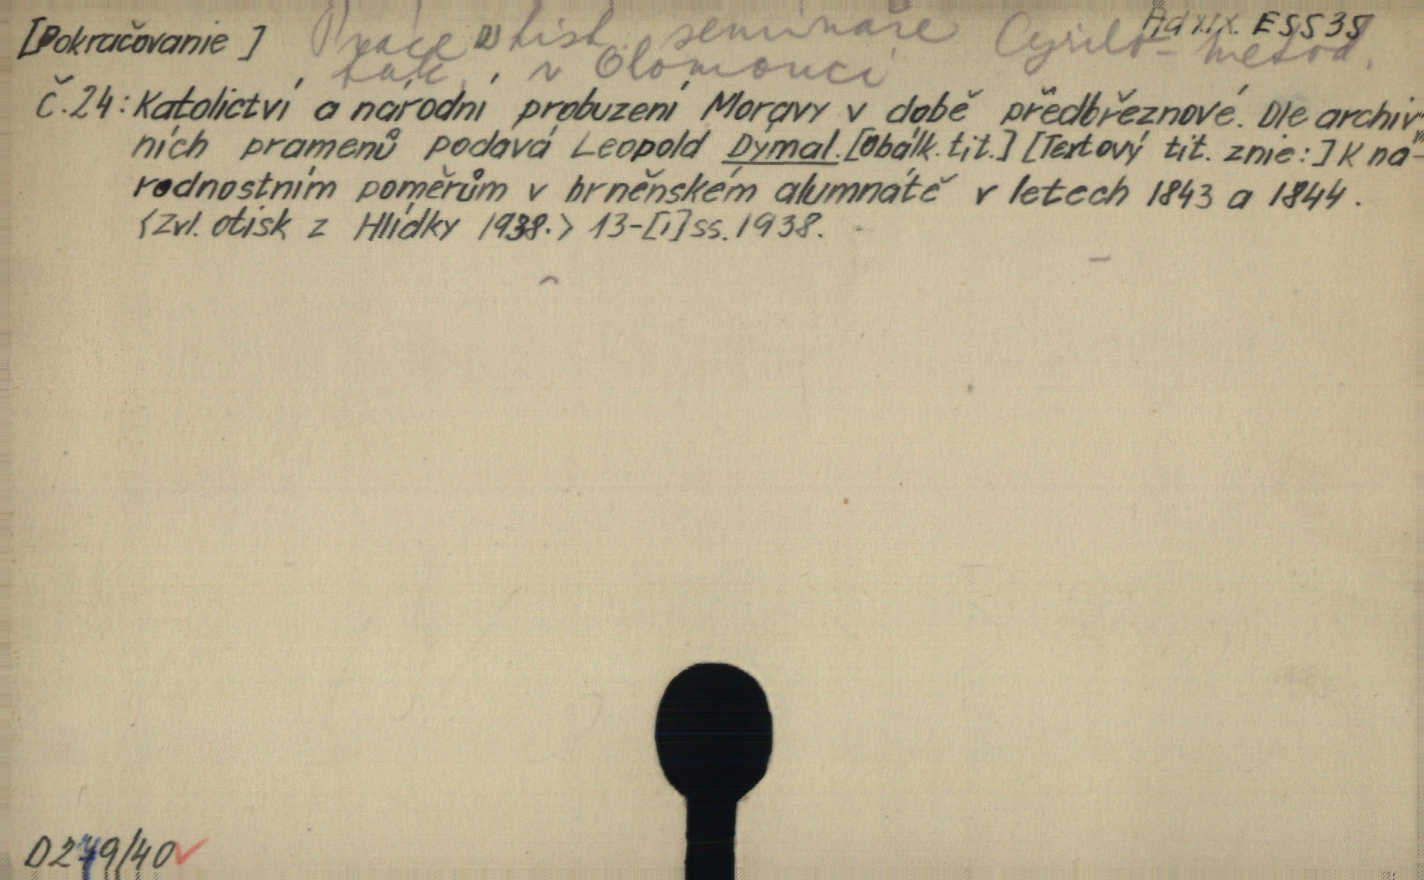 [Pokračovanie] Práce hist. semináře Cyrilo-metod. Ad XIX. E5535
fak. v Olomouci
Č.24: Katolictví a národní probuzení Moravy v době předbřeznové. Dle archiv-
ních pramenů podává Leopold Dýmal. [Obálk. tit.] [Textový tit. znie:] K ná-
rodnostním poměrům v brněnském alumnátě v letech 1843 a 1844.
<Zvl. otisk z Hlídky 1938.> 13-[1] ss. 1938.
D279/40